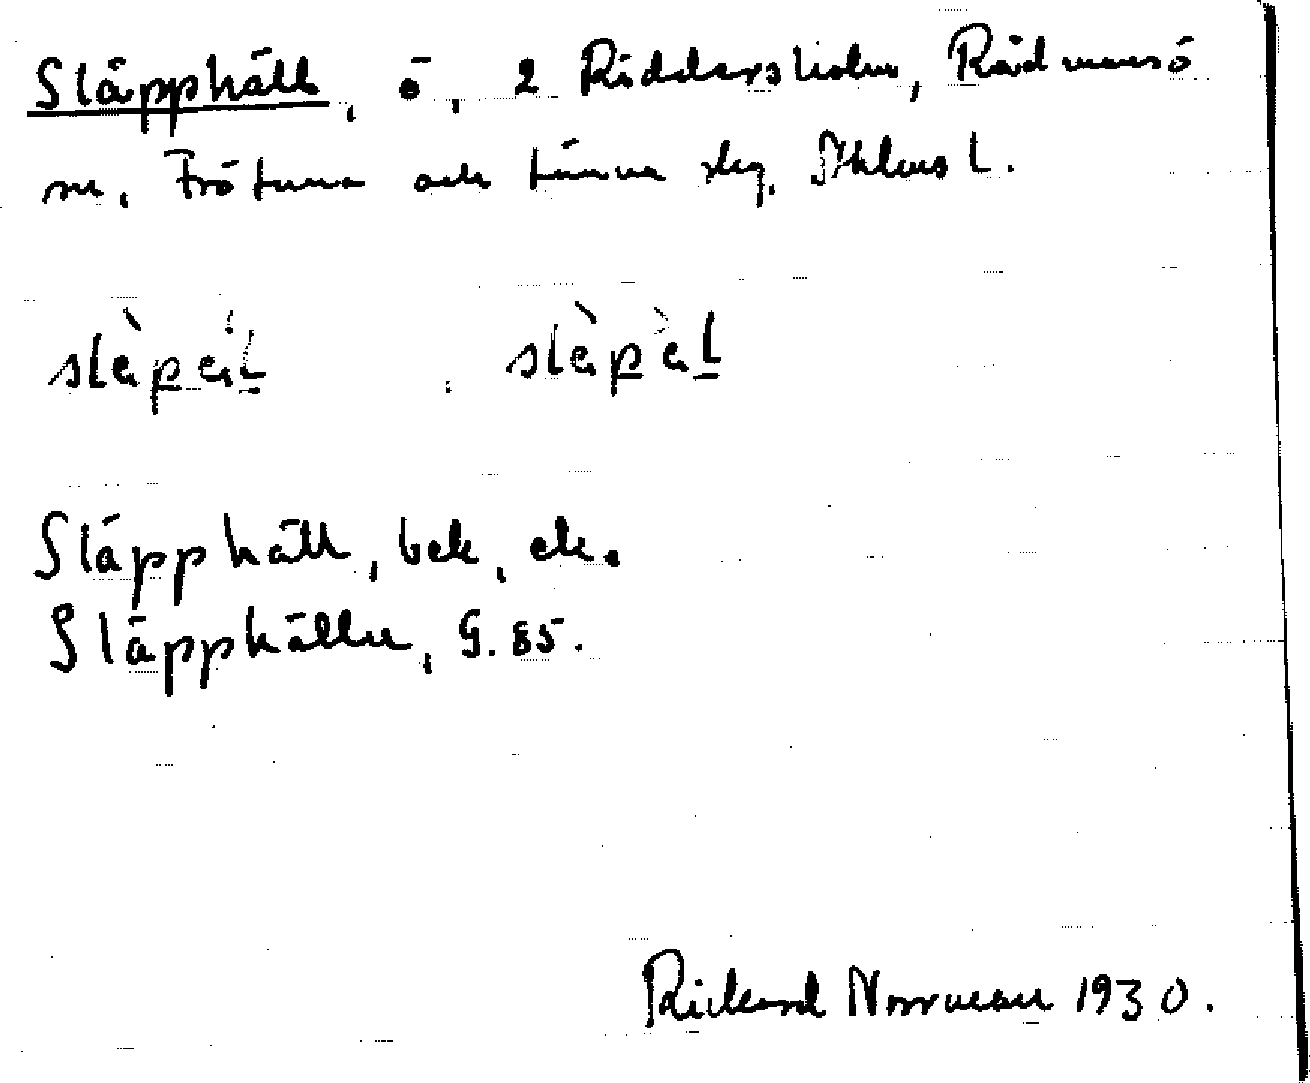 Släpphäll, ö, 2 Riddersholm, Rådmansö
sn, Frötuna och Länna skg, Sthlms l.
slèpäl, slèpàl
Släpphäll, bek, ek.
Släpphällen, G. 85.
Rickard Norrman 1930.